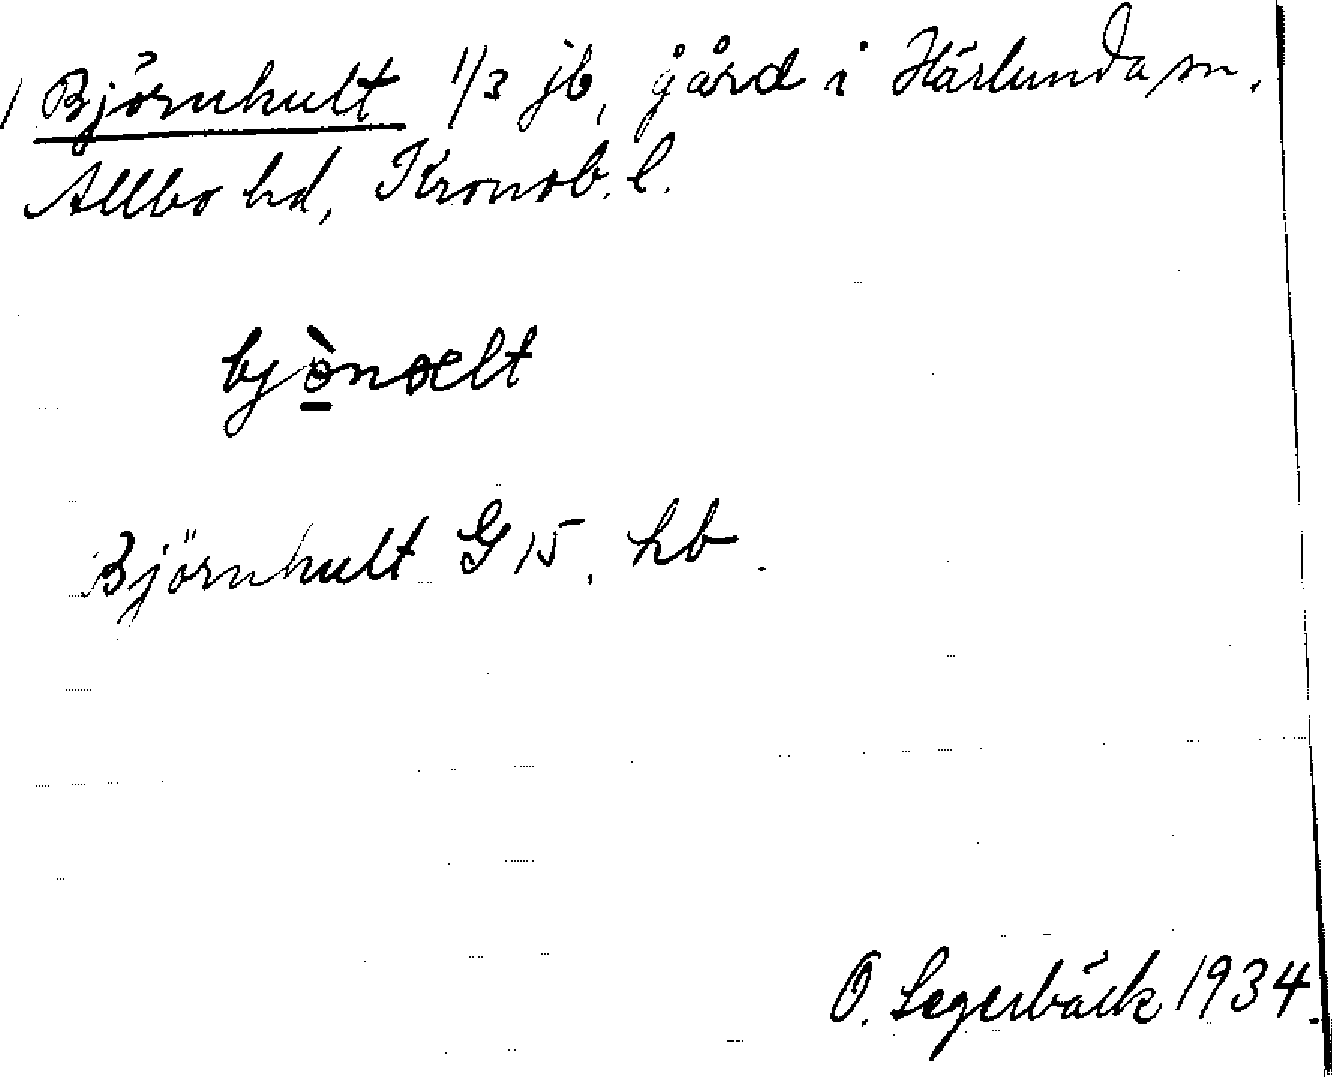 Björnhult 1/3 jb, gård i Härlunda sn,
Allbo hd, Kronob. l.
bjɵ̀nælt
Björnhult G 15, hb.
O. Segerbäck 1934.